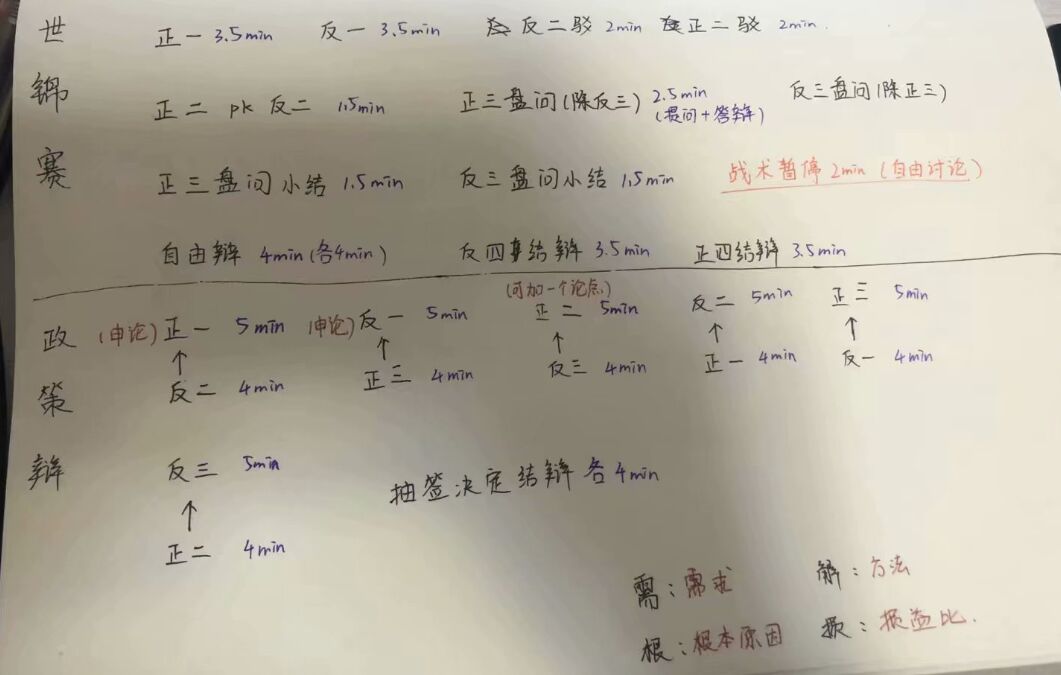 世 正一 3.5min 反一 3.5min 反二驳 2min 正二驳 2min.
锦 正二 pk 反二 1.5min 正三盘问(除反三) 2.5min 反三盘问(除正三)
(提问+答辩)
赛 正三盘问小结 1.5min 反三盘问小结 1.5min 战术暂停 2min (自由讨论)
自由辩 4min(各4min) 反四结辩 3.5min 正四结辩 3.5min
(可加一个论点)
政 (申论) 正一 5min (申论) 反一 5min 正二 5min 反二 5min 正三 5min
↑ ↑ ↑ ↑ ↑
策 反二 4min 正三 4min 反三 4min 正一 4min 反一 4min
辩 反三 5min
↑ 抽签决定结辩各4min
正二 4min
需:需求 解:方法
根:根本原因 损:损益比.